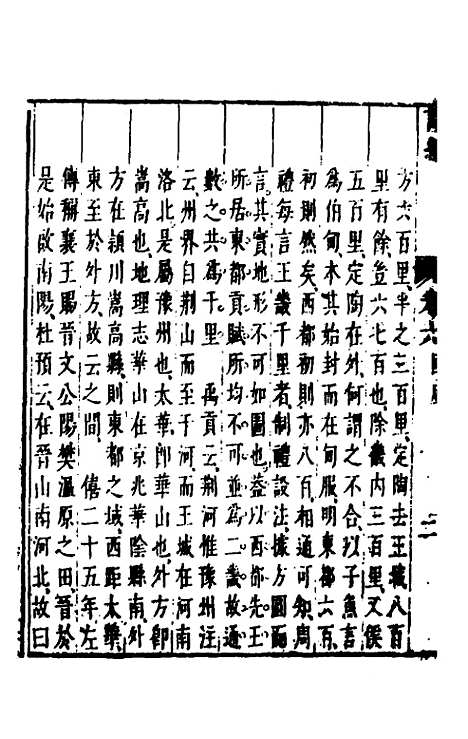 方六百里半之三百里定陶去王城八百
里有餘豈六七百也除畿內三百里又侯
五百里定陶在外何謂之不合以子魚言
為伯甸本其始封而在甸服明東都六百
初則然矣西都初則亦八百相通可知周
禮每言王畿千里者制禮設法據方圓而
言其實地形不可如圖也蓋以西都先王
所居東都貢賦所均不可並為二畿故通
數之共為千里　禹貢云荊河惟豫州注
云州界自荊山而至于河而王城在河南
洛北是屬豫州也太華即華山也外方即
嵩高也地理志華山在京兆華陰縣南外
方在潁川嵩高縣則東都之域西距太華
東至於外方故云之間　僖二十五年左
傳稱襄王賜晉文公陽樊溫原之田晉於
是始啟南陽杜預云在晉山南河北故曰
卷六
國風
二